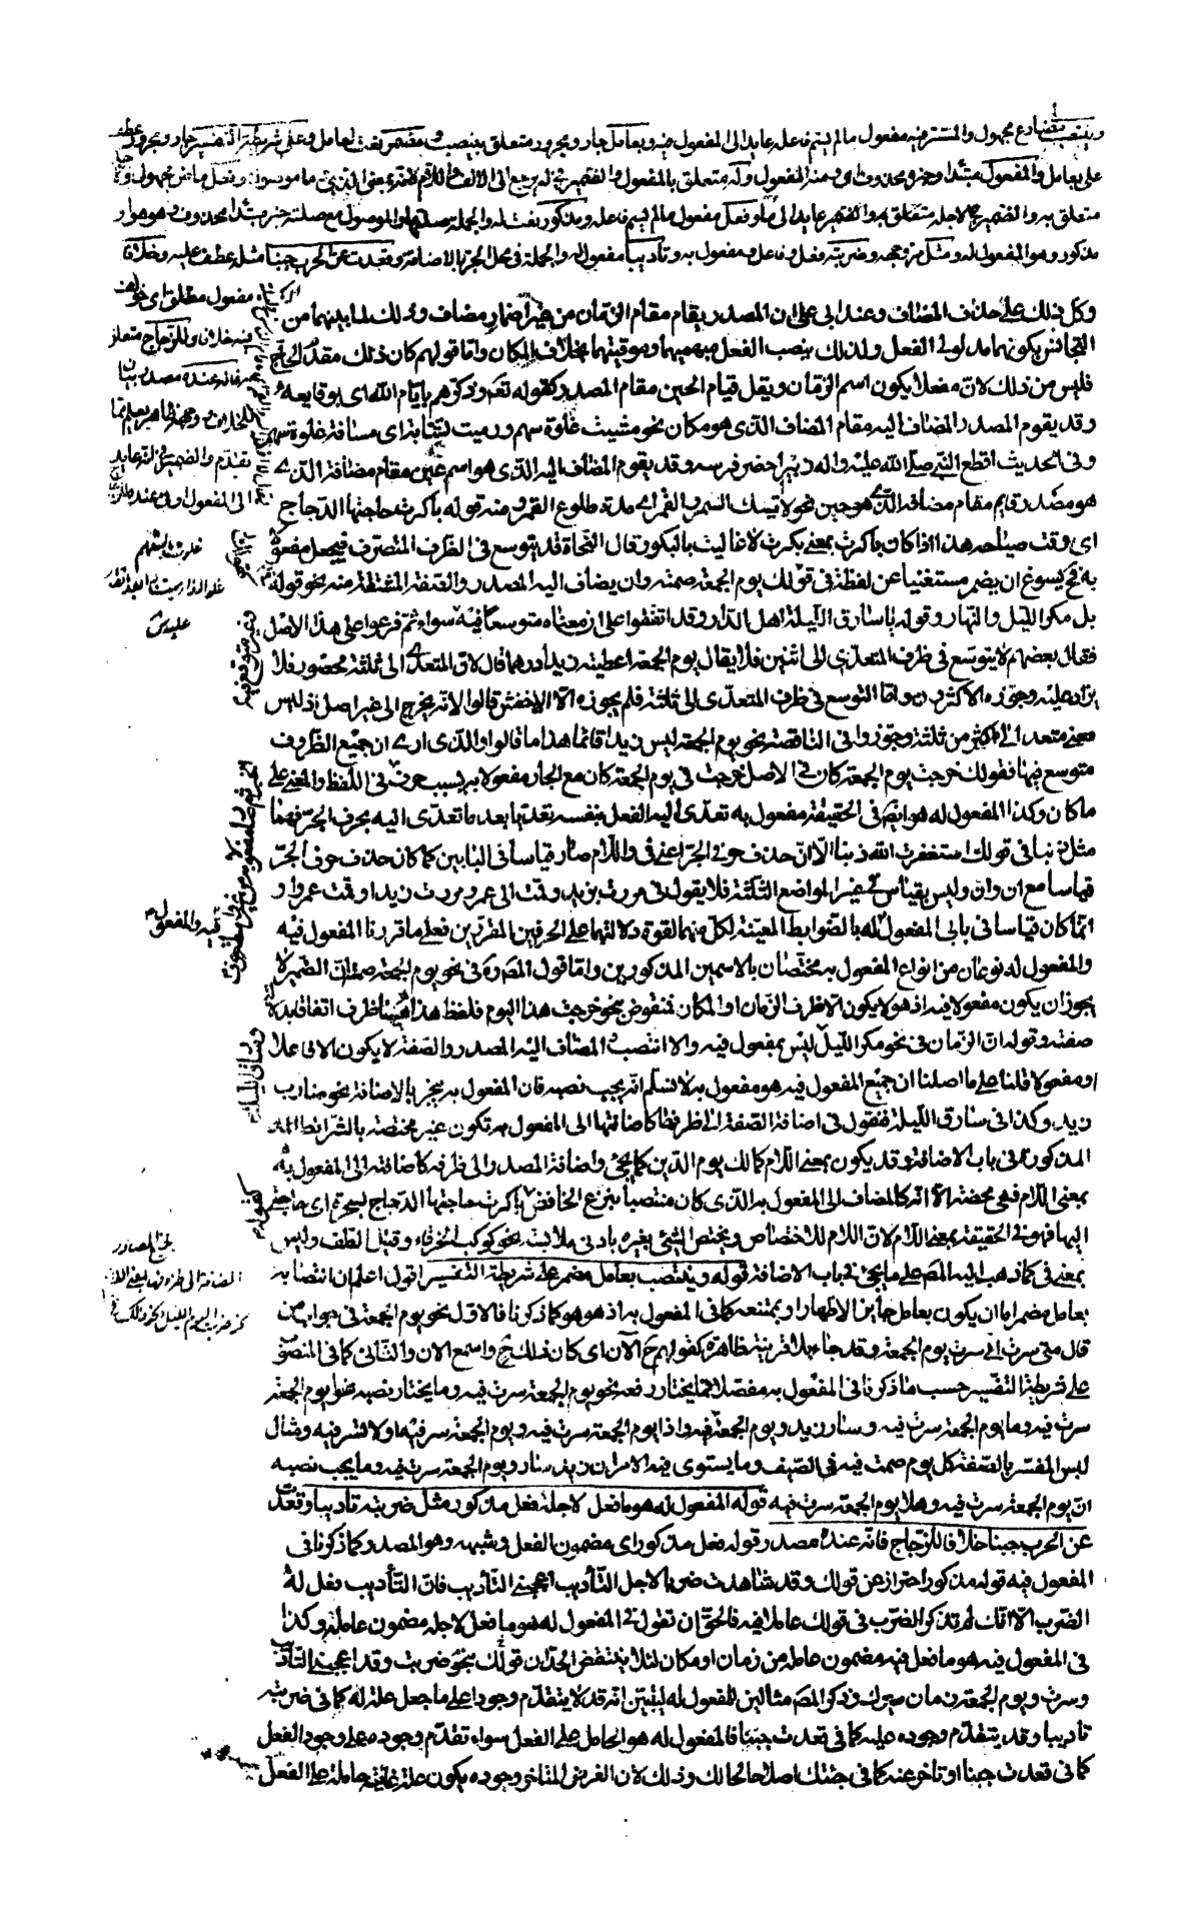 وينتصب مضارع مجهول والمستتر فيه مفعول ما لم يسم فاعله عايد الى المفعول فيه وبعامل جار ومجرور متعلق بينتصب ومضمر نعت لعامل وعلى شريطة التفسير جار ومجرور عطف
على بعامل والمفعول مبتدا وخبره محذوف اى ومنه المفعول وله متعلق بالمفعول والضمير فى له يرجع الى الالف واللام لانه بمعنى الذى ما موصولة وفعل ماض مجهول و
متعلق به والضمير فى لاجله متعلق به والضمير عايد الى ما وفعل مفعول ما لم يسم فاعله ومذكور نعت له والجملة صلتها والموصول مع صلته خبر مبتدا محذوف وهو هو او
مذكور وهو المفعول له ومثل مر وجهه وضربته فعل وفاعل ومفعول به وتأديبا مفعول له والجملة فى محل الجر بالاضافة وقعدت عن الحرب جبنا مثله عطف عليه وخلافا
وكل ذلك على حذف المضاف وعند ابى على ان المصدر يقام مقام الزمان من غير اضمار مضاف وذلك لما بينهما من
التجانس بكونهما مدلولى الفعل ولذلك ينصب الفعل مبهميهما وموقتيهما بخلاف المكان واما قولهم كان ذلك مقدم الحاج
فليس من ذلك لان مفعلا يكون اسم الزمان ويقل قيام الحين مقام المصدر كقوله تعم وذكرهم بايام الله اى بوقايعه
وقد يقوم المصدر المضاف اليه مقام المضاف الذى هو مكان نحو مشيت غلوة سهم ورميت اى مسافة غلوة سهم
وفى الحديث اقطع النبى صلى الله عليه واله زبير احضر فرسه وقد يقوم المضاف اليه الذى هو اسم عين مقام مضافه الذى
هو مصدر قايم مقام مضافه الذى هو حين نحو لا اتيك السمر والقمر اى مدة طلوع القمر ومنه قوله باكرت حاجتها الدجاج
اى وقت صياحه هذا اذا كان باكرت بمعنى بكرت لا غالبت بالبكور قال النحاة قد يتوسع فى الظرف المتصرف فيجعل مفعولا
به فح يسوغ ان يضمر مستغنيا عن لفظة فى قولك يوم الجمعة صمته وان يضاف اليه المصدر والصفة المشتقة منه نحو قوله
بل مكر الليل والنهار وقوله يا سارق الليلة اهل الدار وقد اتفقوا على ان معناه متوسعا فيه سواء ثم فرعوا على هذا الاصل
فقال بعضهم لا يتوسع فى ظرف المتعدى الى اثنين فلا يقال يوم الجمعة اعطيته زيدا درهما قال لان المتعدى الى ثلثة محصور فلا
يزاد عليه وجوزه الاكثرون واما التوسع فى ظرف المتعدى الى ثلثة فلم يجوزه الا الاخفش قالوا لانه يخرج الى غير اصل اذ ليس
معنى متعد الى اكثر من ثلثة وجوزوا فى الناقصة نحو يوم الجمعة ليس زيدا قائما هذا ما قالوا والذى ارى ان جميع الظروف
متوسع فيها فقولك خرجت يوم الجمعة كان فى الاصل خرجت فى يوم الجمعة كان مع الجار مفعولا به بسبب حرف فى اللفظ والمعنى على
ما كان وكذا المفعول له هو ايضم فى الحقيقة مفعول به تعدى اليه الفعل بنفسه بعد ما تعدى اليه بحرف الجر فهما
مثل ذنبا فى قولك استغفرت الله ذنبا الا ان حذف حرفى الجر اعنى فى واللام صار قياسا فى البابين كما كان حذف حرف الجر
قياسا مع ان وان وليس بقياس فى غير المواضع الثلثة فلا يقول فى مررت بزيد وقمت الى عمرو مررت زيدا وقمت عمروا و
انما كان قياسا فى بابى المفعول له بالضوابط المعينة لكل منهما لقوة دلالتهما على الحرفين المقدرين فعلى ما قررنا المفعول فيه
والمفعول له نوعان من انواع المفعول به مختصان بالاسمين المذكورين واما قول المصره فى نحو يوم الجمعة صمته ان الضمير لا
يجوز ان يكون مفعولا فيه اذ هو لا يكون الا ظرف الزمان او المكان فمنقوض بنحو خرجت هذا اليوم فلفظ هذا ههنا ظرف اتفاقا بدلالة
صفته وقوله ان الزمان فى نحو مكر الليل ليس بمفعول فيه والا انتصب المضاف اليه المصدر والصفة لا يكون الا فاعلا
او مفعولا قلنا على ما اصلنا ان جميع المفعول فيه هو مفعول به لا نسلم انه يجب نصبه فان المفعول به ينجر بالاضافة نحو ضارب
زيد وكذا فى سارق الليلة فنقول فى اضافة الصفة الى ظرفها كاضافتها الى المفعول به تكون غير مختصة بالشرائط
المذكورة فى باب الاضافة وقد يكون بمعنى اللام كمالك يوم الدين كما يجئ واضافة المصدر الى ظرفه كاضافته الى المفعول به
بمعنى اللام فهى محضة الا انه كالمضاف الى المفعول به الذى كان منتصبا بنزع الخافض باكرت حاجتها الدجاج بسحرة اى حاجتى
اليها فهو فى الحقيقة بمعنى اللام لان اللام للاختصاص ويختص الشئ بغيره بادنى ملابسة نحو كوكب الخرقاء وقتيل الطف وليس
بمعنى فى كما ذهب اليه المصم على ما يجئ فى باب الاضافة قوله وينتصب بعامل مضمر على شريطة التفسير اقول اعلم ان انتصابه
بعامل مضمر اما ان يكون بعامل جايز الاظهار او بممتنعه كما فى المفعول به اذ هو هو كما ذكرنا فالاول نحو يوم الجمعة فى جواب من
قال متى سرت اى سرت يوم الجمعة وقد جاء بلا قرينة ظاهرة كقولهم ح الآن اى كان ذلك ح واسمع الآن والثانى كما فى المنصوب
على شريطة التفسير حسب ما ذكرنا فى المفعول به مفصلا فما يختار رفعه نحو يوم الجمعة سرت فيه وما يختار نصبه نحو ايوم الجمعة
سرت فيه وما يوم الجمعة سرت فيه وسار زيد ويوم الجمعة فيه واذا يوم الجمعة سرت فيه ويوم الجمعة سر فيه او لا تسر فيه ومثال
لبس المفسر بالصفة كل يوم صمت فيه فى الصيف وما يستوى فيه الامران زيد سار ويوم الجمعة سرت فيه وما يجب نصبه
ان يوم الجمعة سرت فيه وهلا يوم الجمعة سرت فيه قوله المفعول له هو ما فعل لاجله فعل مذكور مثل ضربته تاديبا وقعدت
عن الحرب جبنا خلافا للزجاج فانه عنده مصدر قوله فعل مذكور اى مضمون الفعل وشبهه وهو المصدر كما ذكرنا فى
المفعول فيه قوله مذكور احتراز عن قولك وقد شاهدت ضربا لاجل التأديب اعجبنى التأديب فان التأديب فعل له
الضرب الا انك لم تذكر الضرب فى قولك عاملا فيه فالحق ان نقول فى المفعول له هو ما فعل لاجله مضمون عامله وكذا
فى المفعول فيه هو ما فعل فيه مضمون عامله من زمان او مكان لئلا ينتقض الحد ان قولك نحو ضربت وقد اعجبنى التأديب
وسرت ويوم الجمعة زمان سيرك وذكر المصم مثالين للمفعول له ليبين انه قد لا يتقدم وجودا على ما جعل علة له كما فى ضربته
تاديبا وقد يتقدم وجوده عليه كما فى قعدت جبنا فالمفعول له هو الحامل على الفعل سواء تقدم وجوده على وجود الفعل
كما فى قعدت جبنا او تاخر عنه كما فى جئتك اصلاحا لحالك وذلك لان الغرض المتاخر وجوده يكون علة غائية حاملة على الفعل
مفعول مطلق اى خولف
فيه خلافا وللزجاج متعلق
فانه عنده مصدر بيان
تقدم والضمير فى انه عايد
الى المفعول وفى عنده
وغير متوقع فيه
فيه والمفعول
كقوله
المضافة الى ظروفها بمعنى اللام